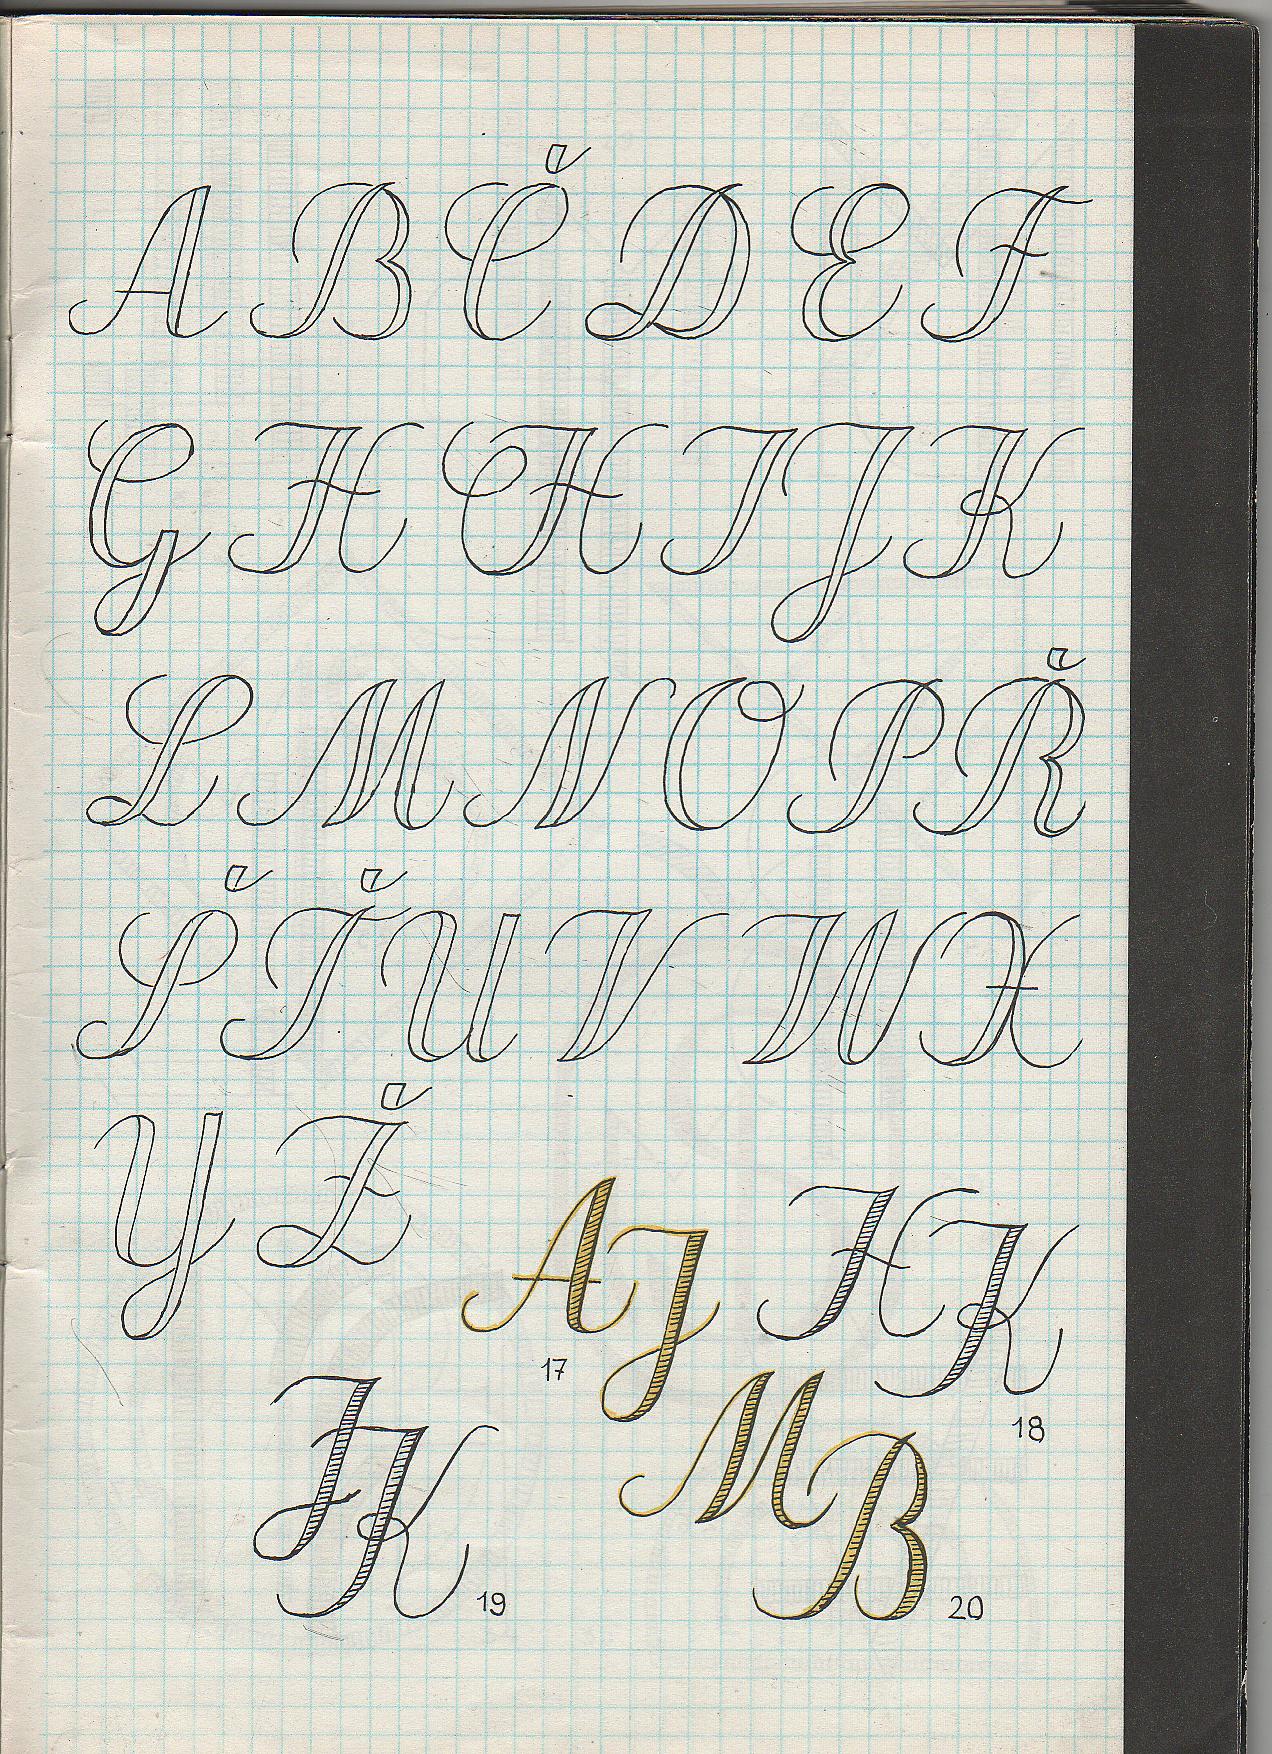 A B Č D E F
G H CH I J K
L M N O P Ř
Š Ť U V W X
Y Ž
AJ HK
17
18
JK MB
19
20